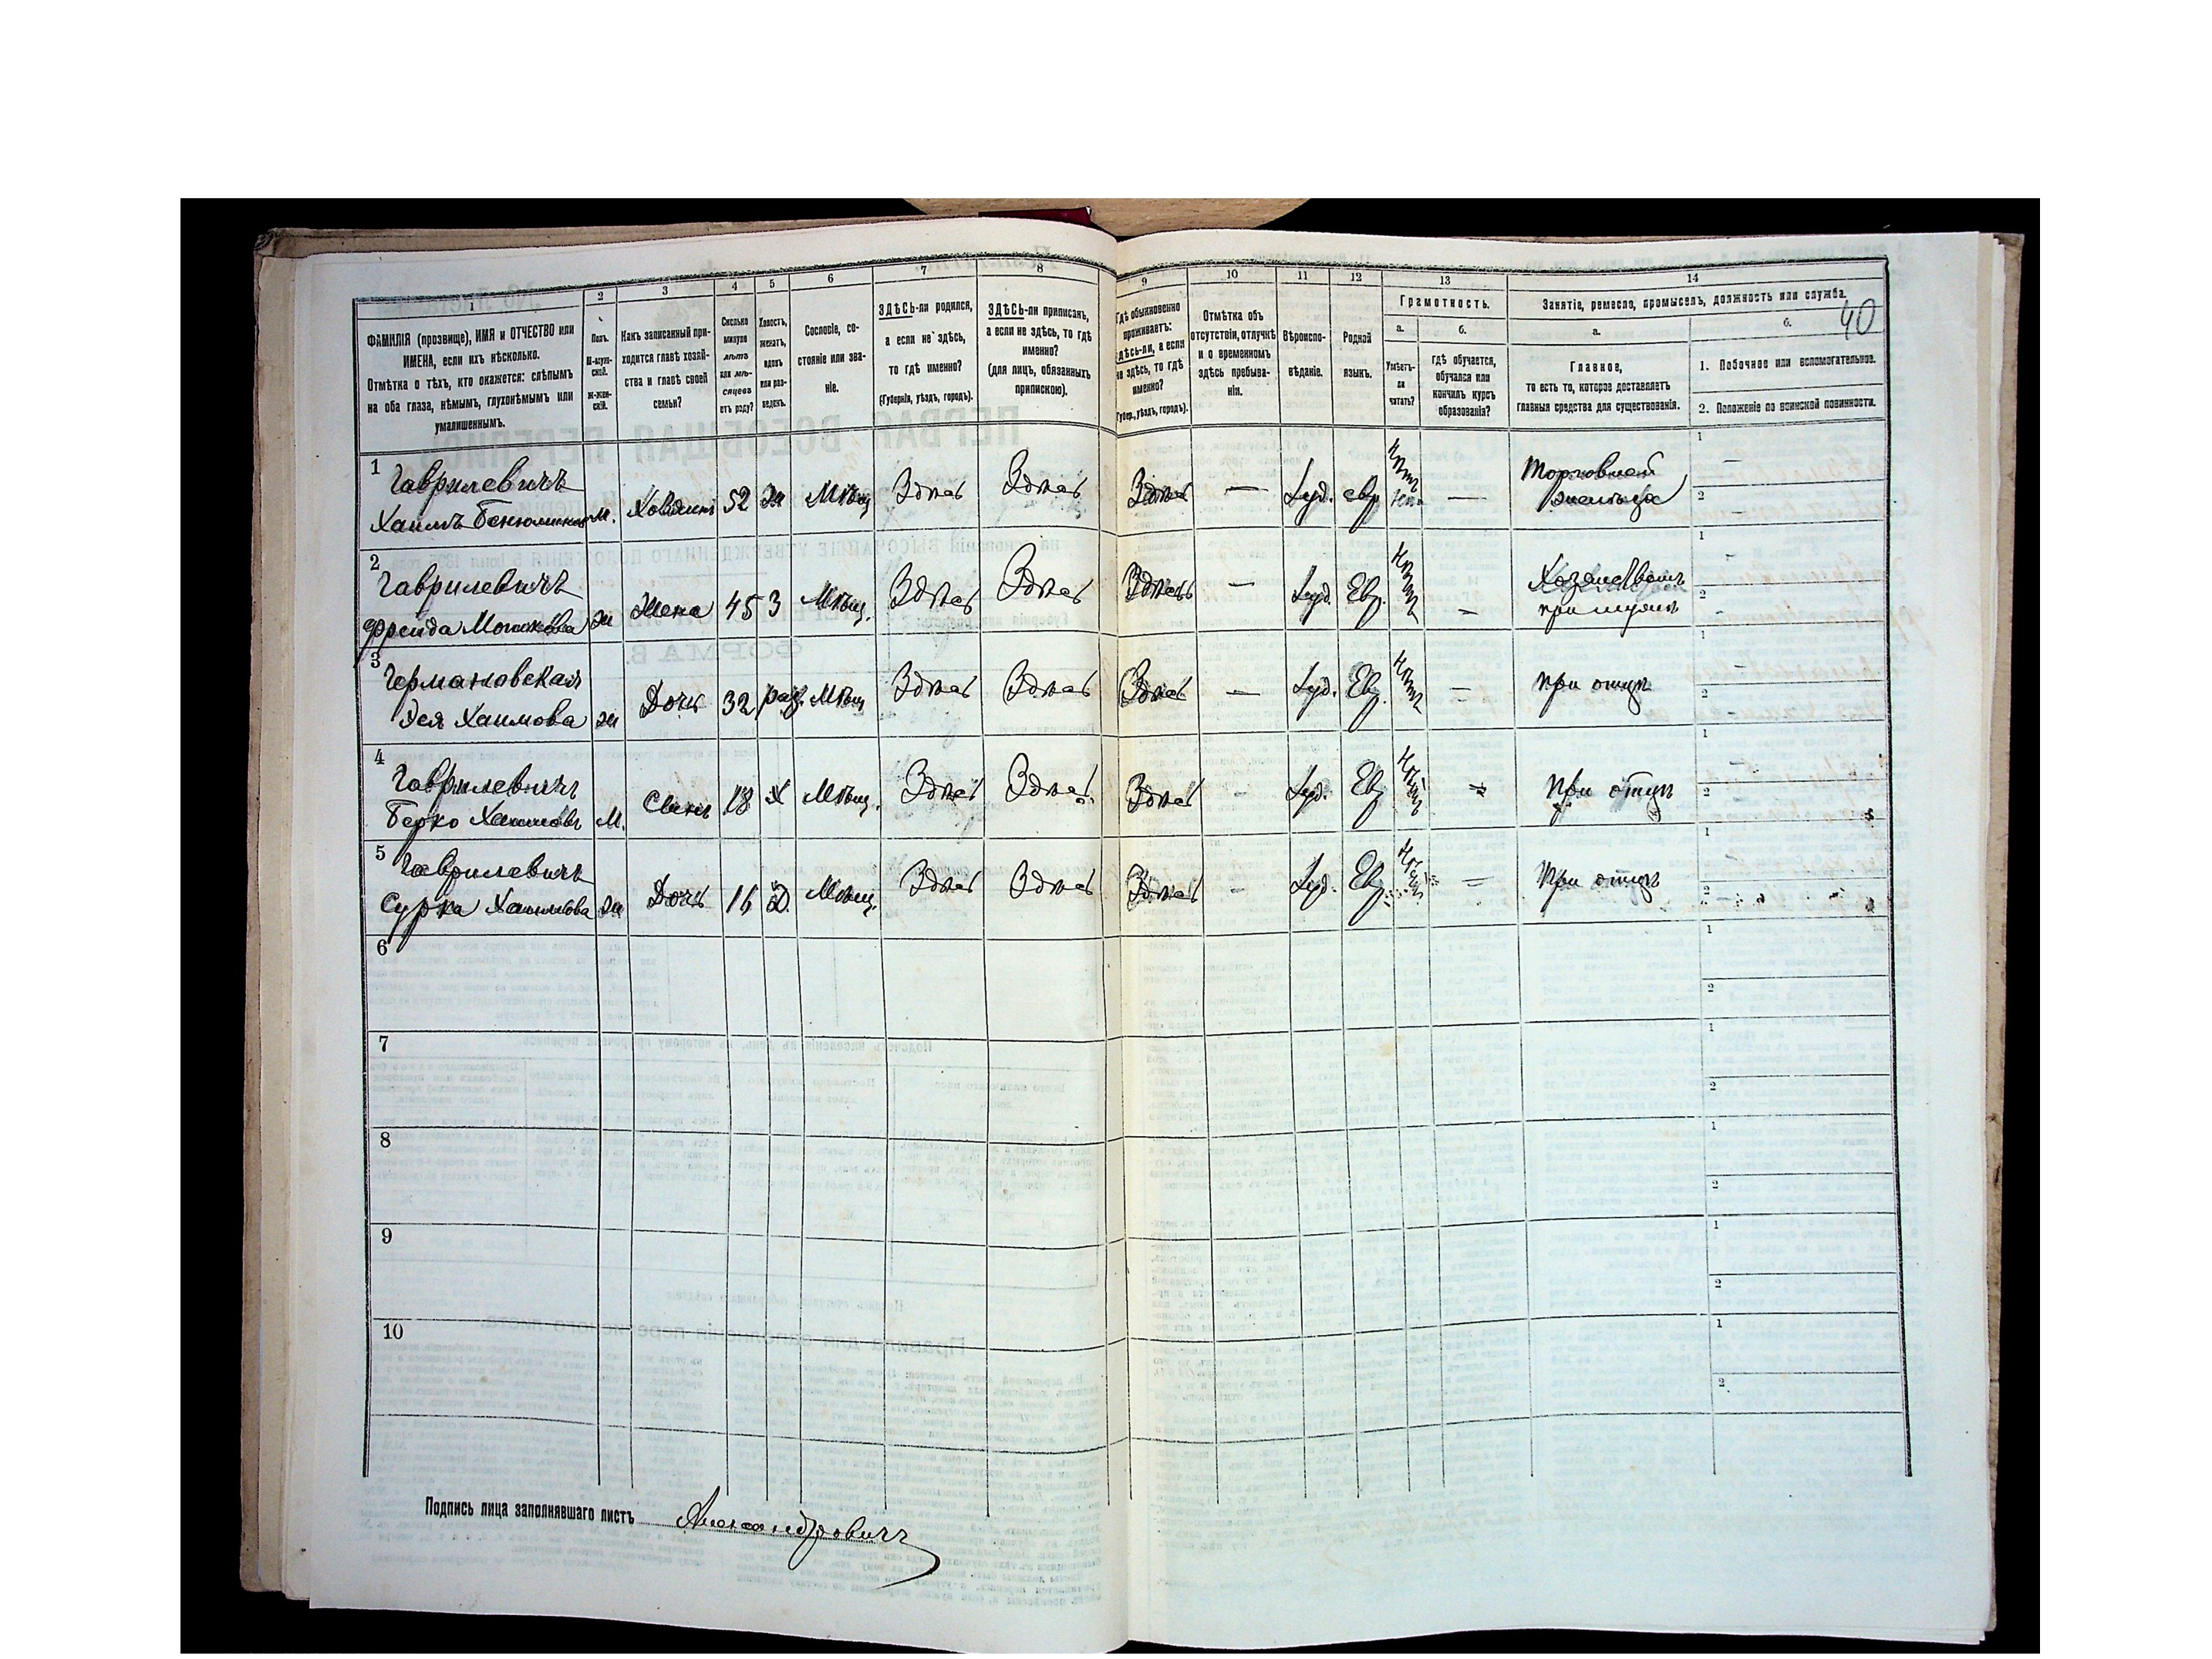 40
1
2
3
4
5
6
7
8
9
10
11
12
13
14
ФАМИЛІЯ (прозвище), ИМЯ и ОТЧЕСТВО или
ИМЕНА, если ихъ нѣсколько.
Отмѣтка о тѣхъ, кто окажется: слѣпымъ
на оба глаза, нѣмымъ, глухонѣмымъ или
умалишеннымъ.
Полъ.
М-муж-
ской.
Ж-жен-
скій.
Какъ записанный при-
ходится главѣ хозяй-
ства и главѣ своей
семьи?
Сколько
минуло
лѣтъ
или мѣ-
сяцевъ
отъ роду?
Холостъ,
женатъ,
вдовъ
или раз-
веденъ.
Сословіе, со-
стояніе или зва-
ніе.
ЗДѢСЬ-ли родился,
а если не здѣсь,
то гдѣ именно?
(Губернія, уѣздъ, городъ).
ЗДѢСЬ-ли приписанъ,
а если не здѣсь, то гдѣ
именно?
(для лицъ, обязанныхъ
припискою).
Гдѣ обыкновенно
проживаетъ:
здѣсь-ли, а если
не здѣсь, то гдѣ
именно?
(Губер., уѣздъ, городъ).
Отмѣтка объ
отсутствіи, отлучкѣ
и о временномъ
здѣсь пребыва-
ніи.
Вѣроиспо-
вѣданіе.
Родной
языкъ.
Грамотность.
а.
Умѣетъ-
ли
читать?
б.
гдѣ обучается,
обучался или
кончилъ курсъ
образованія?
Занятіе, ремесло, промыселъ, должность или служба.
а.
Главное,
то есть то, которое доставляетъ
главныя средства для существованія.
б.
1. Побочное или вспомогательное.
2. Положеніе по воинской повинности.
1 Гаврилевичъ
Хаимъ М. Хозяинъ 52 Ж Мѣщ Здѣсь Здѣсь Здѣсь — Іуд. евр — 1 —
2 —
2 Гаврилевичъ
Фрейда Мошкова Ж Жена 45 З Мѣщ. Здѣсь Здѣсь Здѣсь — Іуд. Евр. Нѣтъ — при мужѣ 1 —
2 —
3 Германовская
Эся Хаимова Ж Дочь 32 раз. Мѣщ Здѣсь Здѣсь Здѣсь — Іуд. Евр. Нѣтъ — при отцѣ 1 —
2 —
4 Гаврилевичъ
Берко Хаимовъ М. Сынъ 18 Х Мѣщ. Здѣсь Здѣсь Здѣсь — Іуд. Евр. Нѣтъ — При отцѣ 1
2
5 Гаврилевичъ
Сурка Хаимова Ж Дочь 16 Д. Мѣщ. Здѣсь Здѣсь Здѣсь — Іуд. Евр. Нѣтъ — При отцѣ 1
2
6 1
2
7 1
2
8 1
2
9 1
2
10 1
2
Подпись лица заполнявшаго листъ Александровичъ